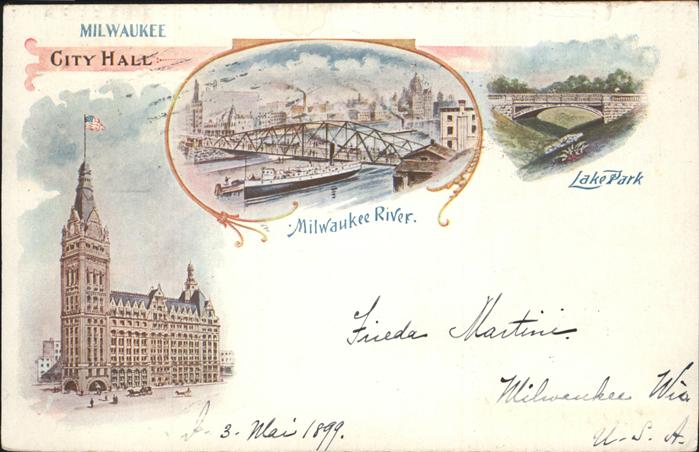 MILWAUKEE
CITY HALL
Milwaukee River.
Lake Park
Frieda Martini.
Milwaukee Wis
U. S. A.
3. Mai 1899.